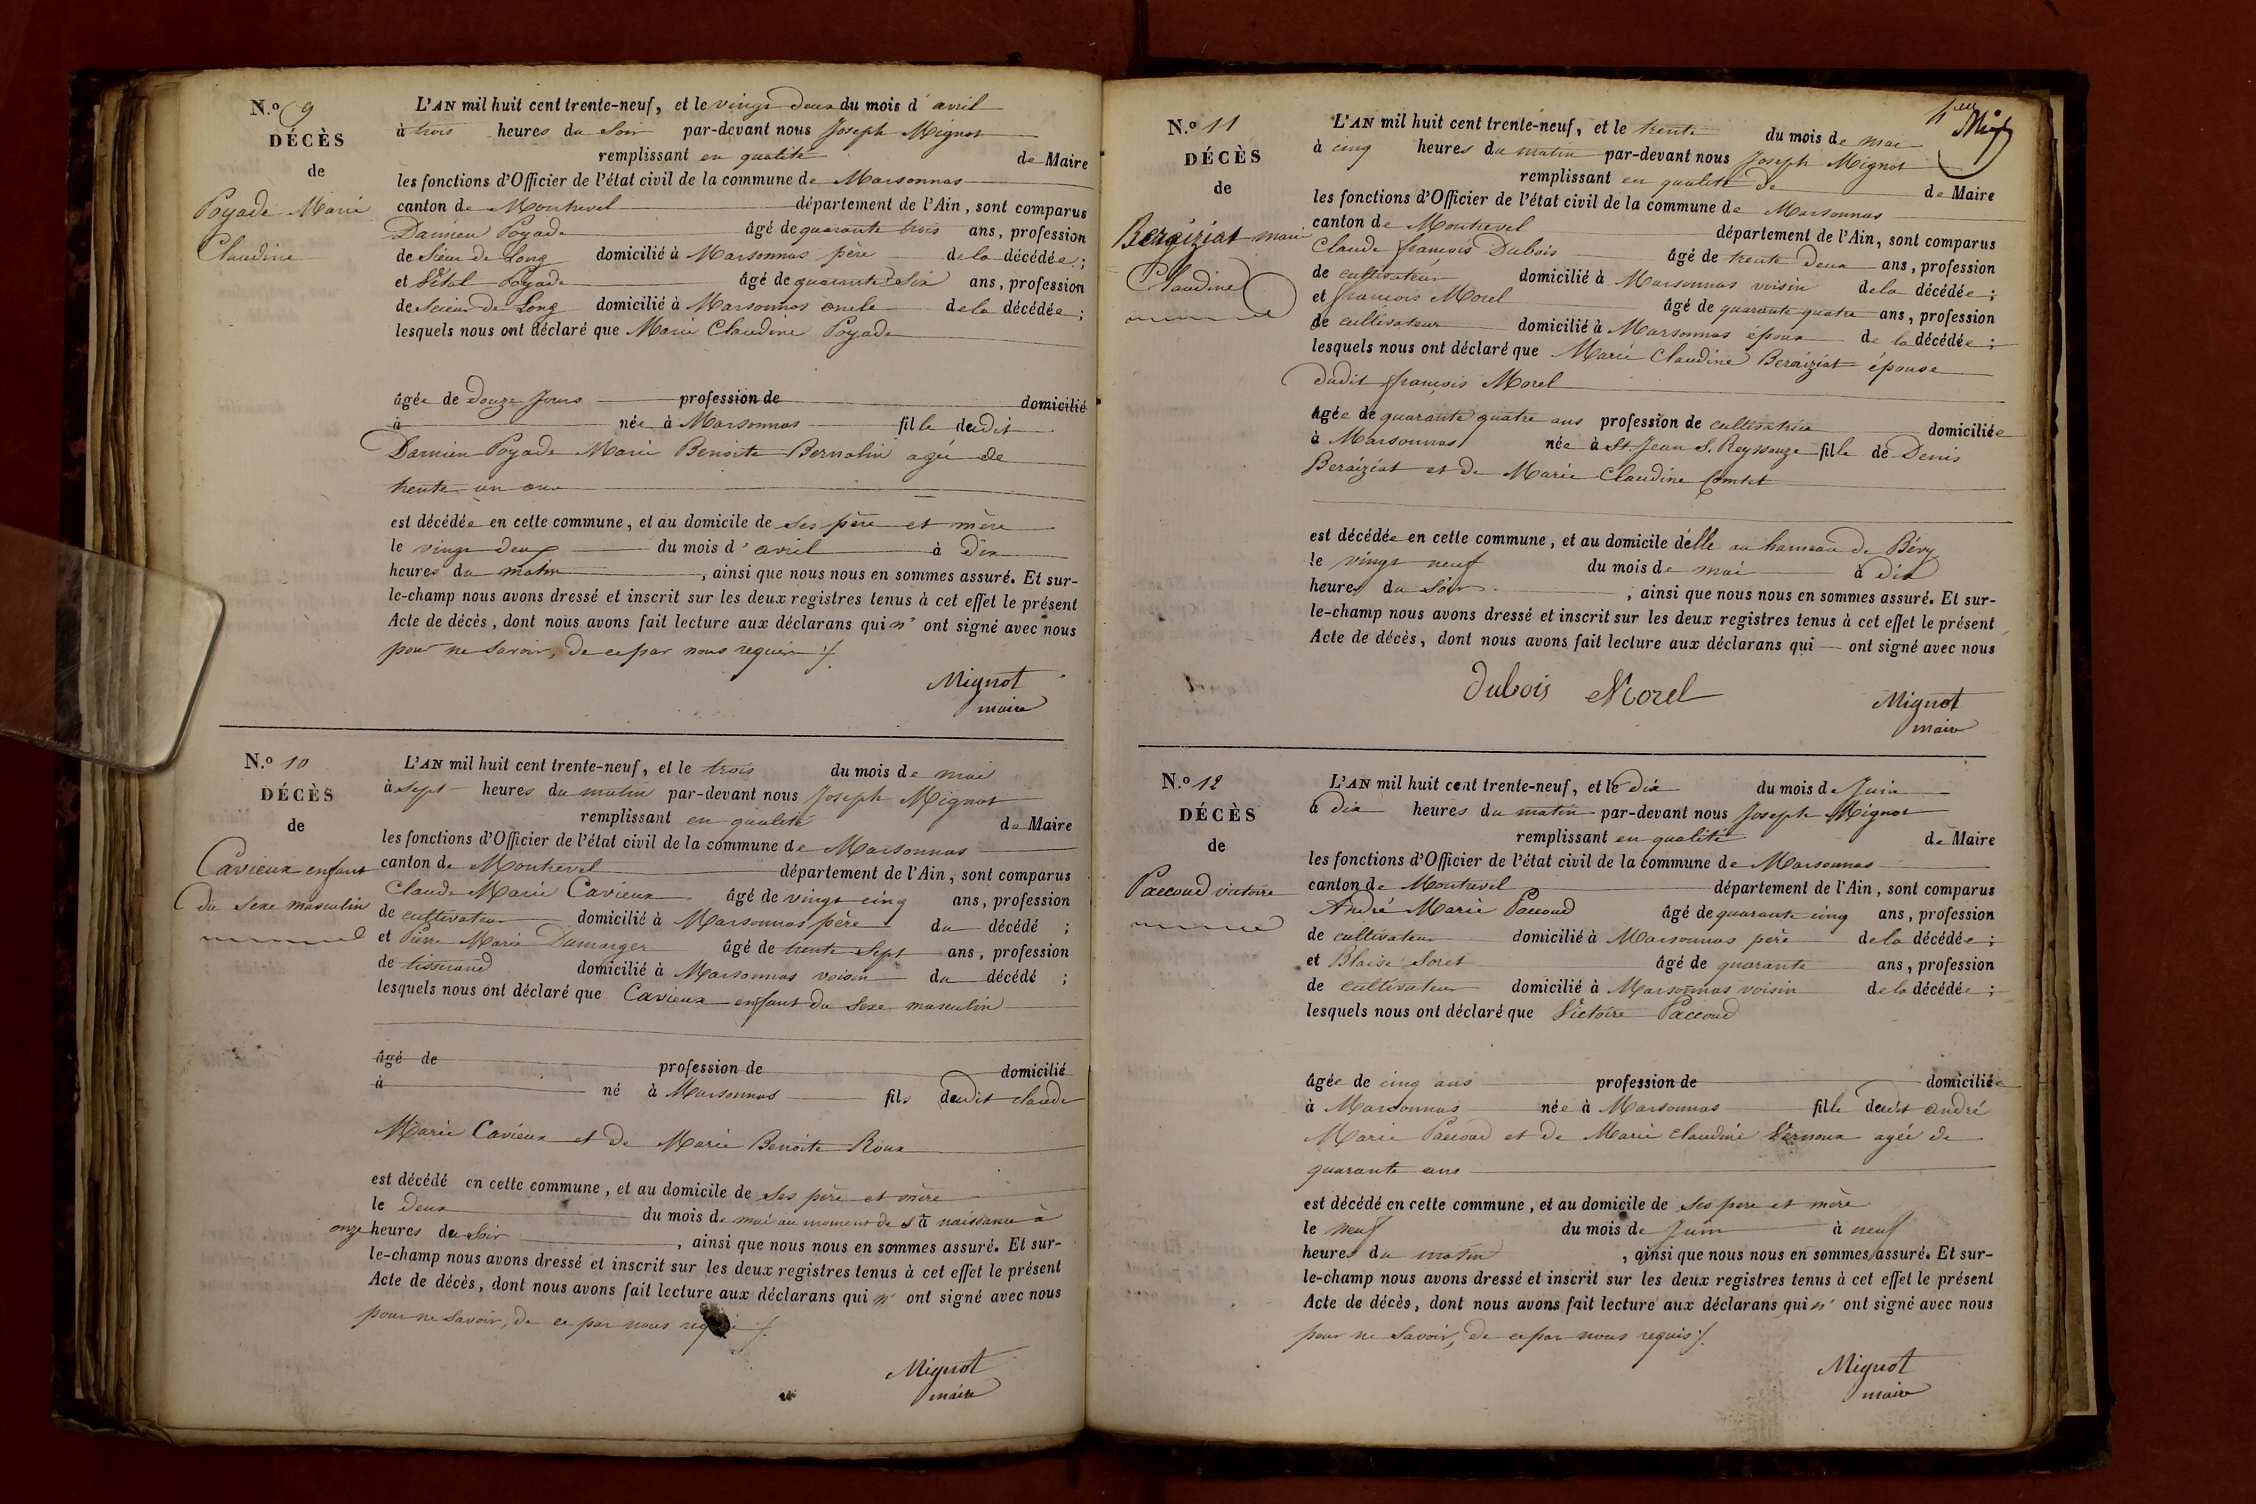 N.o 9
DÉCÈS
de
Poyade Marie
Claudine
L'AN mil huit cent trente-neuf, et le vingt deux du mois d'avril
à trois heures du soir par-devant nous Joseph Mignot
remplissant en qualité de Maire
les fonctions d'Officier de l'état civil de la commune de Marsonnas
canton de Montrevel département de l'Ain, sont comparus
Damien Poyade âgé de quarante trois ans, profession
de Sieur de Long domicilié à Marsonnas père de la décédée;
et Vital Poyade âgé de quarante six ans, profession
de Scieur de Long domicilié à Marsonnas oncle de la décédée;
lesquels nous ont déclaré que Marie Claudine Poyade
âgée de douze jours profession de domicilié
à née à Marsonnas fille dudit
Damien Poyade Marie Benoite Bernolin agée de
trente un ans
est décédée en cette commune, et au domicile de ses père et mère
le vingt deux du mois d'avril à dix
heures du matin, ainsi que nous nous en sommes assuré. Et sur-
le-champ nous avons dressé et inscrit sur les deux registres tenus à cet effet le présent
Acte de décès, dont nous avons fait lecture aux déclarans qui n'ont signé avec nous
pour ne savoir, de ce par nous requis ./.
Mignot
maire
N.o 10
DÉCÈS
de
Cavieux enfant
du sexe masculin
L'AN mil huit cent trente-neuf, et le trois du mois de mai
à sept heures du matin par-devant nous Joseph Mignot
remplissant en qualité de Maire
les fonctions d'Officier de l'état civil de la commune de Marsonnas
canton de Montrevel département de l'Ain, sont comparus
Claude Marie Cavieux âgé de vingt cinq ans, profession
de cultivateur domicilié à Marsonnas père du décédé;
et Pierre Marie Damarger âgé de trente sept ans, profession
de tisserand domicilié à Marsonnas voisin du décédé;
lesquels nous ont déclaré que Cavieux enfant du sexe masculin
âgé de profession de domicilié
à né à Marsonnas fils dudit claude
Marie Cavieux et de Marie Benoite Roux
est décédé en cette commune, et au domicile de ses père et mère
le deux du mois de mai au moment de sa naissance à
onze heures du soir, ainsi que nous nous en sommes assuré. Et sur-
le-champ nous avons dressé et inscrit sur les deux registres tenus à cet effet le présent
Acte de décès, dont nous avons fait lecture aux déclarans qui n'ont signé avec nous
pour ne savoir, de ce par nous requis ./.
Mignot
maire
N.o 11
DÉCÈS
de
Beraiziat marie
Claudine
L'AN mil huit cent trente-neuf, et le trente du mois de mai
à cinq heures du matin par-devant nous Joseph Mignot
remplissant en qualité de de Maire
les fonctions d'Officier de l'état civil de la commune de Marsonnas
canton de Montrevel département de l'Ain, sont comparus
Claude françois Dubois âgé de trente deux ans, profession
de cultivateur domicilié à Marsonnas voisin de la décédée;
et françois Morel âgé de quarante quatre ans, profession
de cultivateur domicilié à Marsonnas époux de la décédée;
lesquels nous ont déclaré que Marie Claudine Beraiziat épouse
dudit françois Morel
âgée de quarante quatre ans profession de cultivatrice domiciliée
à Marsonnas née à St Jean S. Reyssouze fille de Denis
Beraiziat et de Marie Claudine Comtet
est décédée en cette commune, et au domicile d'elle au hameau de Bévy
le vingt neuf du mois de mai à dix
heures du soir, ainsi que nous nous en sommes assuré. Et sur-
le-champ nous avons dressé et inscrit sur les deux registres tenus à cet effet le présent
Acte de décès, dont nous avons fait lecture aux déclarans qui ont signé avec nous
Dubois Morel
Mignot
maire
N.o 12
DÉCÈS
de
Paccoud victoire
L'AN mil huit cent trente-neuf, et le dix du mois de Juin
à dix heures du matin par-devant nous Joseph Mignot
remplissant en qualité de Maire
les fonctions d'Officier de l'état civil de la commune de Marsonnas
canton de Montrevel département de l'Ain, sont comparus
André Marie Paccoud âgé de quarante cinq ans, profession
de cultivateur domicilié à Marsonnas père de la décédée;
et Blaise Soret âgé de quarante ans, profession
de cultivateur domicilié à Marsonnas voisin de la décédée;
lesquels nous ont déclaré que Victoire Paccoud
âgée de cinq ans profession de domiciliée
à Marsonnas née à Marsonnas fille dudit andré
Marie Paccoud et de Marie claudine Vernoux agée de
quarante ans
est décédé en cette commune, et au domicile de ses père et mère
le neuf du mois de Juin à neuf
heures du matin, ainsi que nous nous en sommes assuré. Et sur-
le-champ nous avons dressé et inscrit sur les deux registres tenus à cet effet le présent
Acte de décès, dont nous avons fait lecture aux déclarans qui n'ont signé avec nous
pour ne savoir, de ce par nous requis ./.
Mignot
maire